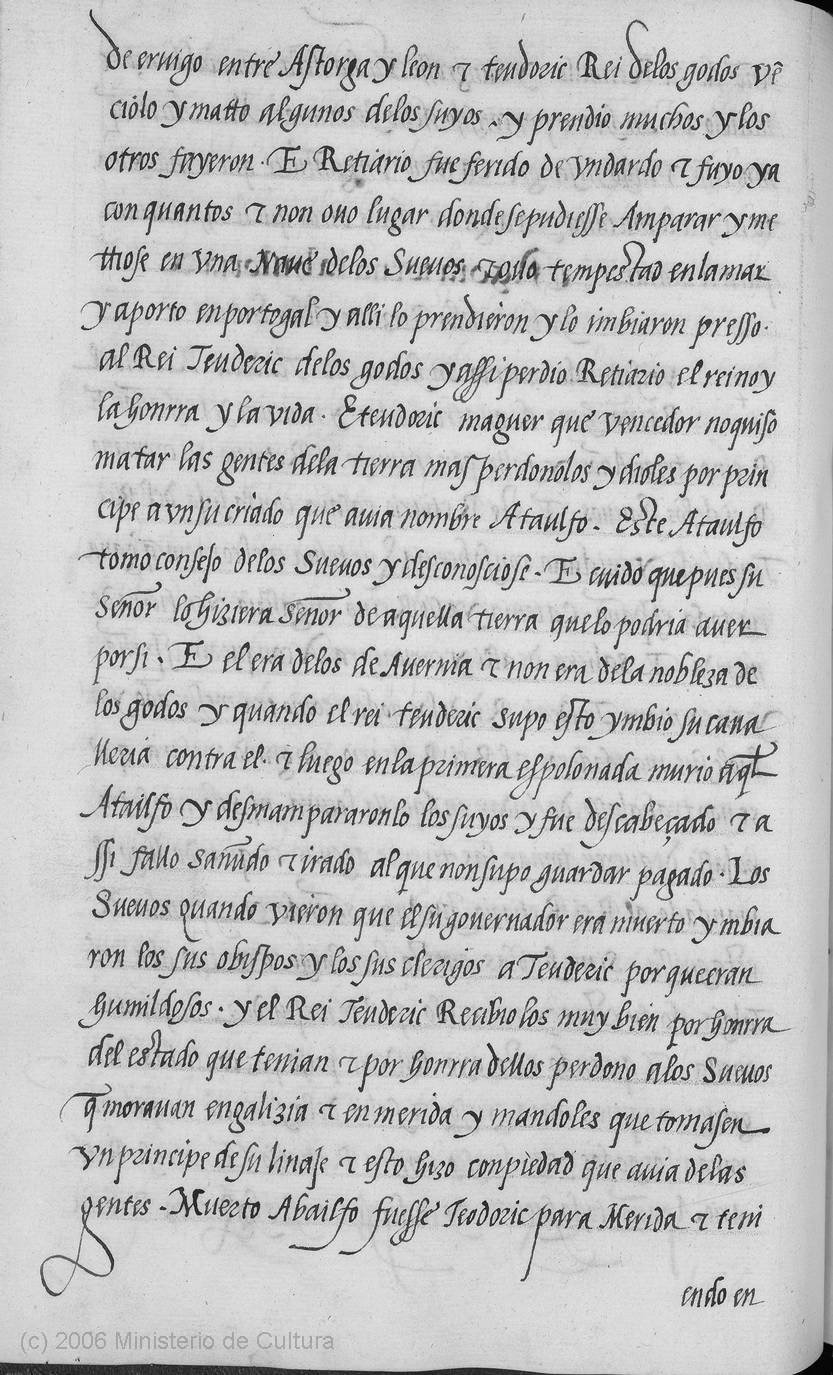 de ervigo entre Astorga y leon τ teudoric Rei delos godos vē
ciolo y matto algunos delos suyos . y prendio muchos y los
otros fuyeron . E Retiario fue ferido de vn dardo τ fuyo ya
con quantos τ non ovo lugar donde se pudiesse Amparar y me
ttiose en vna Nave delos Suevos τ ovo tempestad en la mar
y aporto en portogal y alli lo prendieron y lo imbiaron presso .
al Rei Teuderic delos godos y assi perdio Retiario el reino y
la honrra y la vida . E teudoric maguer que vencedor no quiso
matar las gentes dela tierra mas perdonolos y dioles por prin
cipe a vn su criado que avia nombre Ataulfo . Este Ataulfo
tomo consejo delos Suevos y desconosciose . E cuido que pues su
Señor lo hiziera señor de aquella tierra que lo podria aver
por si . E el era delos de Avernia τ non era dela nobleza de
los godos y quando el rei teuderic supo esto ymbio su cava
lleria contra el . τ luego en la primera espolonada murio aq̄l
Atailfo y desmampararonlo los suyos y fue descabeçado τ a
ssi fallo sañudo τ irado al que non supo guardar pagado . Los
Suevos quando vieron que el su governador era muerto ymbia
ron los sus obispos y los sus clerigos a Teuderic porque eran
humildosos . y el Rei Teuderic Recibio los muy bien por honrra
del estado que tenian τ por honrra dellos perdono alos Suevos
q̄ moravan en galizia τ en merida y mandoles que tomasen
vn principe de su linaje τ esto hizo con piedad que avia delas
gentes . Muerto Abailfo fuesse Teodoric para Merida τ teni
endo en
(c) 2006 Ministerio de Cultura